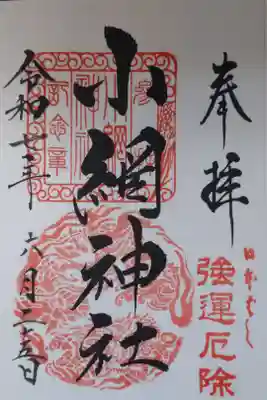 奉拝
日本ばし
強運厄除
小網神社
令和七年
六月二十五日